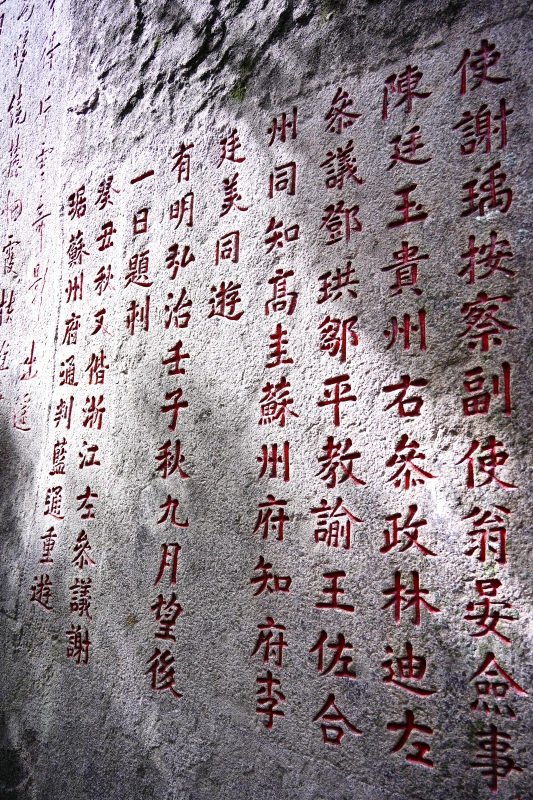 使謝瑀按察副使翁晏僉事
陳廷玉貴州右叅政林迪左
叅議鄧珙鄒平教諭王佐合
州同知高圭蘇州府知府李
廷美同遊
有明弘治壬子秋九月望後
一日題刻
癸丑秋又偕浙江左叅議謝
琚蘇州府通判藍遥重遊